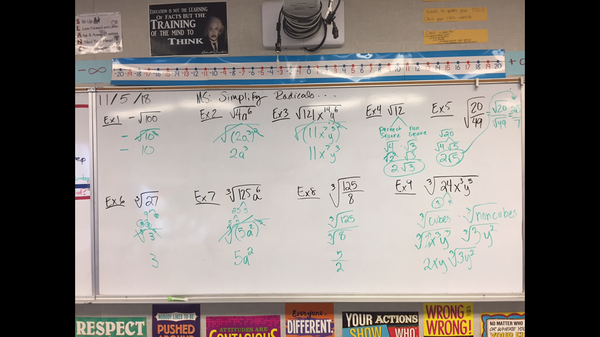 EDUCATION IS NOT THE LEARNING
OF FACTS BUT THE
TRAINING
OF THE MIND TO
THINK
-∞
-20 -19 -18 -17 -16 -15 -14 -13 -12 -11 -10 -9 -8 -7 -6 -5 -4 -3 -2 -1 0 1 2 3 4 5 6 7 8 9 10 11 12 13 14 15 16 17 18 19 20
∞
11/5/18 M5: Simplify Radicals...
Ex1 -√100
= -√10²
= -10
Ex2 √4a⁶
√(2a³)²
2a³
Ex3 √121x¹⁴y⁶
√(11x⁷y³)²
11x⁷y³
Ex4 √12
Perfect Square non Square
√4 · √3
√2² · √3
2√3
Ex5 √20/49 = √20/√49 = 2√5/7
√20
√4 √5
2√5
Ex6 ³√27
³√3³
3
Ex7 ³√125a⁶
³√(5a²)³
5a²
Ex8 ³√125/8
³√125
³√8
5
2
Ex9 ³√24x³y⁵
³√cubes · ³√noncubes
³√2³x³y³ · ³√3y²
2xy ³√3y²
RESPECT
NOBODY LIKES TO BE
PUSHED
AROUND
ATTITUDES ARE
CONTAGIOUS
Everyone
DIFFERENT.
YOUR ACTIONS
SHOW WHO
WRONG
WRONG!
NO MATTER WHO